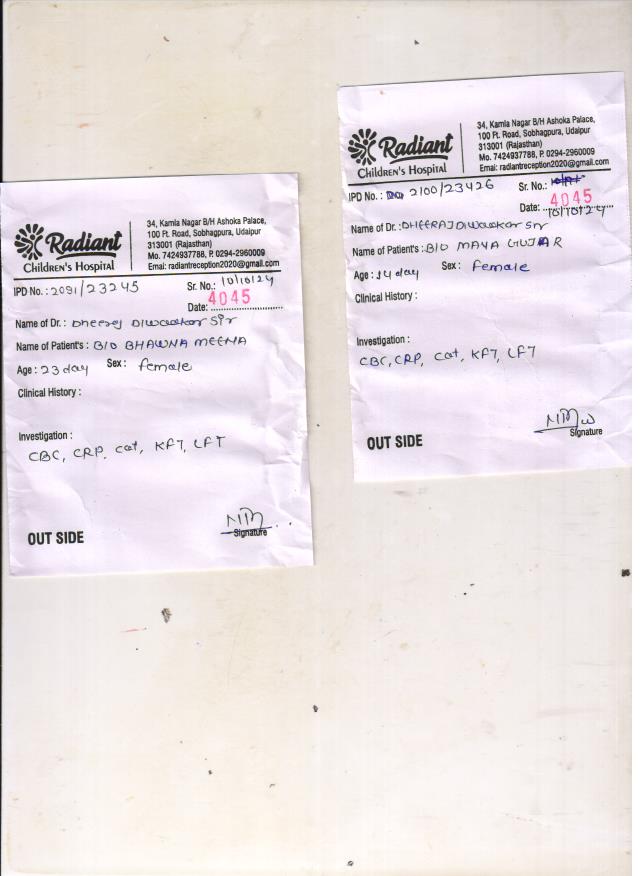 Radiant
Children's Hospital
34, Kamla Nagar B/H Ashoka Palace,
100 Ft. Road, Sobhagpura, Udaipur
313001 (Rajasthan)
Mo. 7424937788, P. 0294-2960009
Emai: radiantreception2020@gmail.com
IPD No. : 2091/23245
Sr. No.: 10/10/24
4045
Date:
Name of Dr. : Dheeraj Diwaakar Sir
Name of Patient's : B/O BHAWNA MEENA
Age : 23 day Sex : female
Clinical History :
Investigation :
CBC, CRP, cat, KFT, LFT
OUT SIDE
Signature
Radiant
Children's Hospital
34, Kamla Nagar B/H Ashoka Palace,
100 Ft. Road, Sobhagpura, Udaipur
313001 (Rajasthan)
Mo. 7424937788, P. 0294-2960009
Emai: radiantreception2020@gmail.com
IPD No. : 2100/23426
Sr. No.:
4045
Date: 10/10/24
Name of Dr. : DHEERAJ Diwaakar Sir
Name of Patient's : B/O MAYA GUJAR
Age : 14 day Sex : female
Clinical History :
Investigation :
CBC, CRP, cat, KFT, LFT
OUT SIDE
Signature